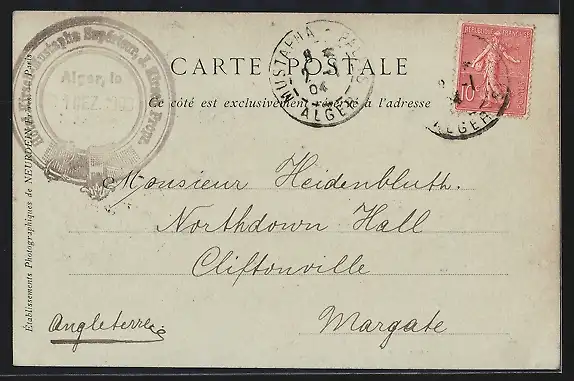 CARTE POSTALE
Ce côté est exclusivement réservé à l'adresse
MUSTAPHA-PALAIS
8
04
ALGER
REPUBLIQUE FRANÇAISE
10
ALGER
Mustapha Supérieur
Alger, le
Monsieur Heidenbluth.
Northdown Hall
Cliftonville
Margate
Angleterre
Établissements Photographiques de NEURDEIN
Paris